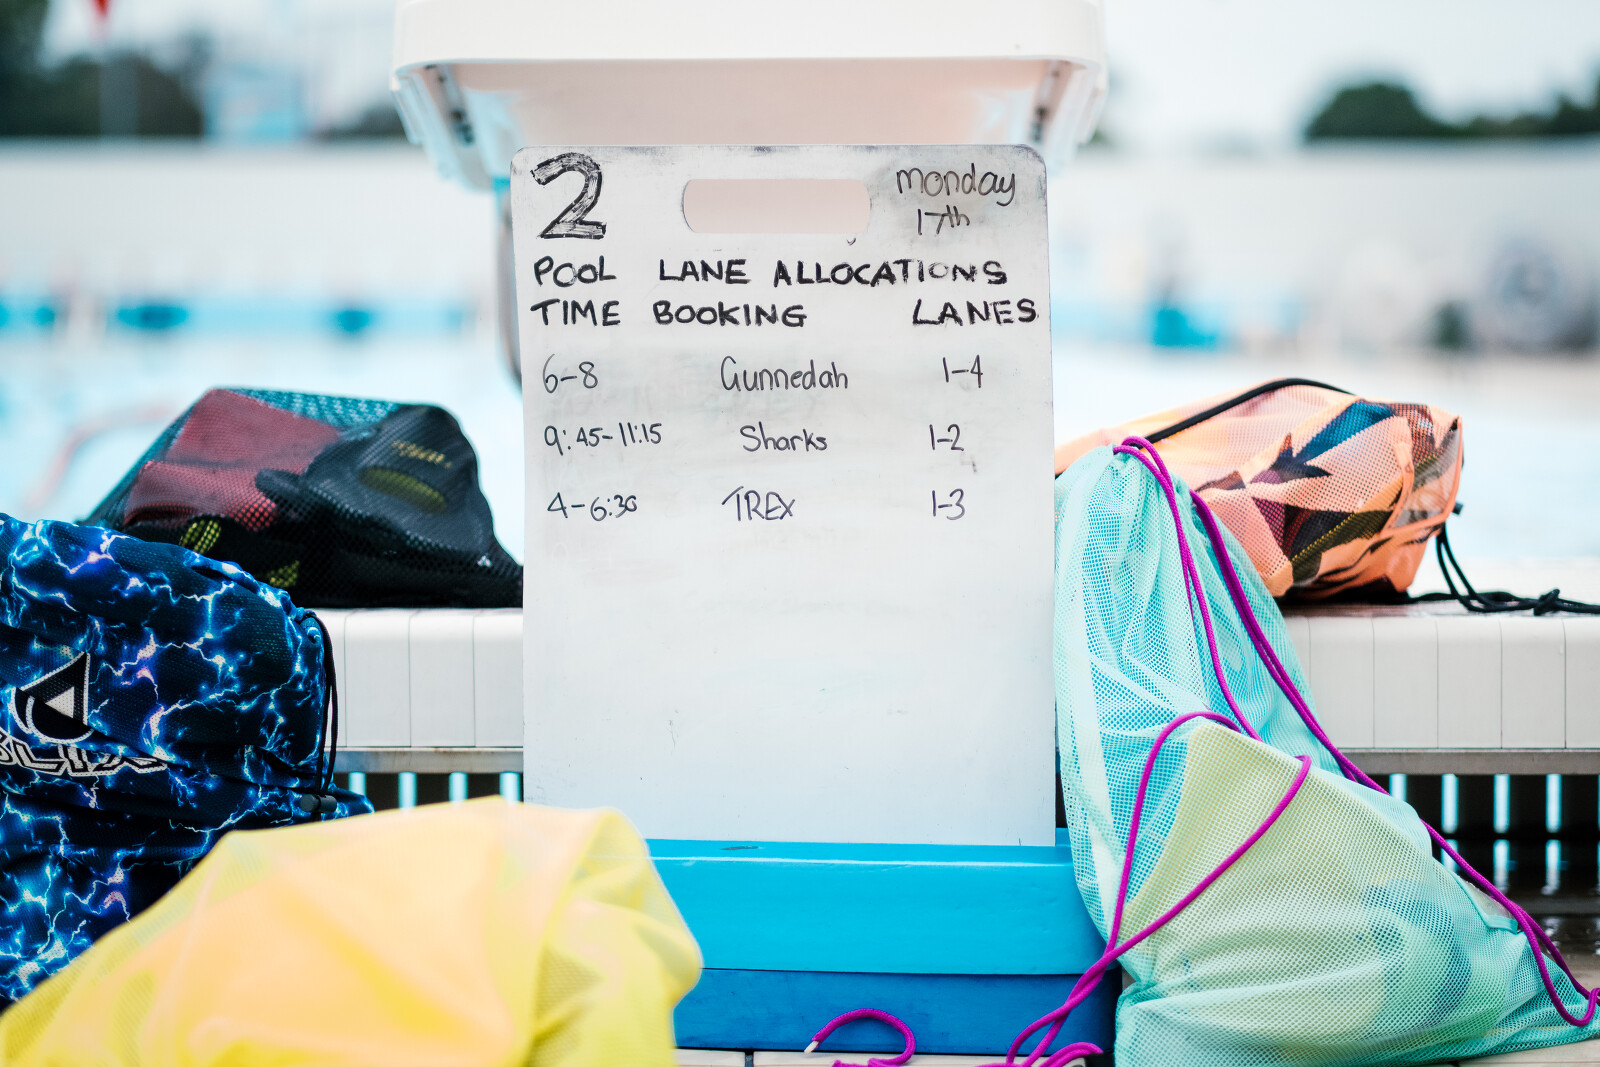 2
monday
17th
POOL LANE ALLOCATIONS
TIME BOOKING LANES
6-8 Gunnedah 1-4
9:45-11:15 Sharks 1-2
4-6:30 TREX 1-3